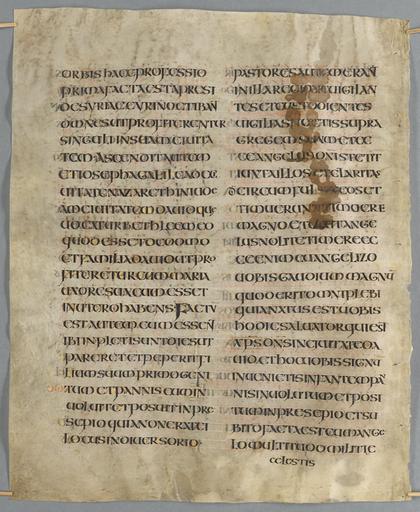 ORBIS HAEC PROFESSIO
PRIMA FACTA EST A PRESI
DE SYRIAE CYRINO ET IBANT
OMNES UT PROFITERENTUR
SINGULI IN SUAM CIUITA
TEM ASCENDIT AUTEM
ET IOSEPH A GALILEA DE
CIUITATE NAZARETH IN IUDE
AM CIUITATEM DAUID QUE
UOCATUR BETHLEEM EO
QUOD ESSET DE DOMO
ET FAMILIA DAUID UT PRO
FITERETUR CUM MARIA
UXORE SUA CUM ESSET
IN UTERO HABENS FACTU
EST AUTEM CUM ESSEN
IBI INPLETI SUNT DIES UT
PARERET ET PEPERIT FI
LIUM SUUM PRIMOGENI
TUM ET PANNIS EUM IN
UOLUIT ET POSUIT IN PRE
SEPIO QUIA NON ERAT EI
LOCUS IN DIUERSORIO
PASTORES AUTEM ERAN
IN ILLA REGIONE UIGILAN
TES ET CUSTODIENTES
UIGILIAS NOCTIS SUPRA
GREGEM SUUM ET EC
CE ANGELUS DNI STETIT
IUXTA ILLOS ET CLARITAS
DI CIRCUMFULSIT EOS ET
TIMUERUNT TIMORE
MAGNO ET DIXIT ANGE
LUS NOLITE TIMERE EC
CE ENIM EUANGELIZO
UOBIS GAUDIUM MAGNU
QUOD ERIT OMNI PLEBI
QUIA NATUS EST UOBIS
HODIE SALUATOR QUI EST
XPS DNS IN CIUITATE DA
UID ET HOC UOBIS SIGNU
INUENIETIS INFANTEM PA
NIS INUOLUTUM ET POSI
TUM IN PRESEPIO ET SU
BITO FACTA EST CUM ANGE
LO MULTITUDO MILITIE
CELESTIS